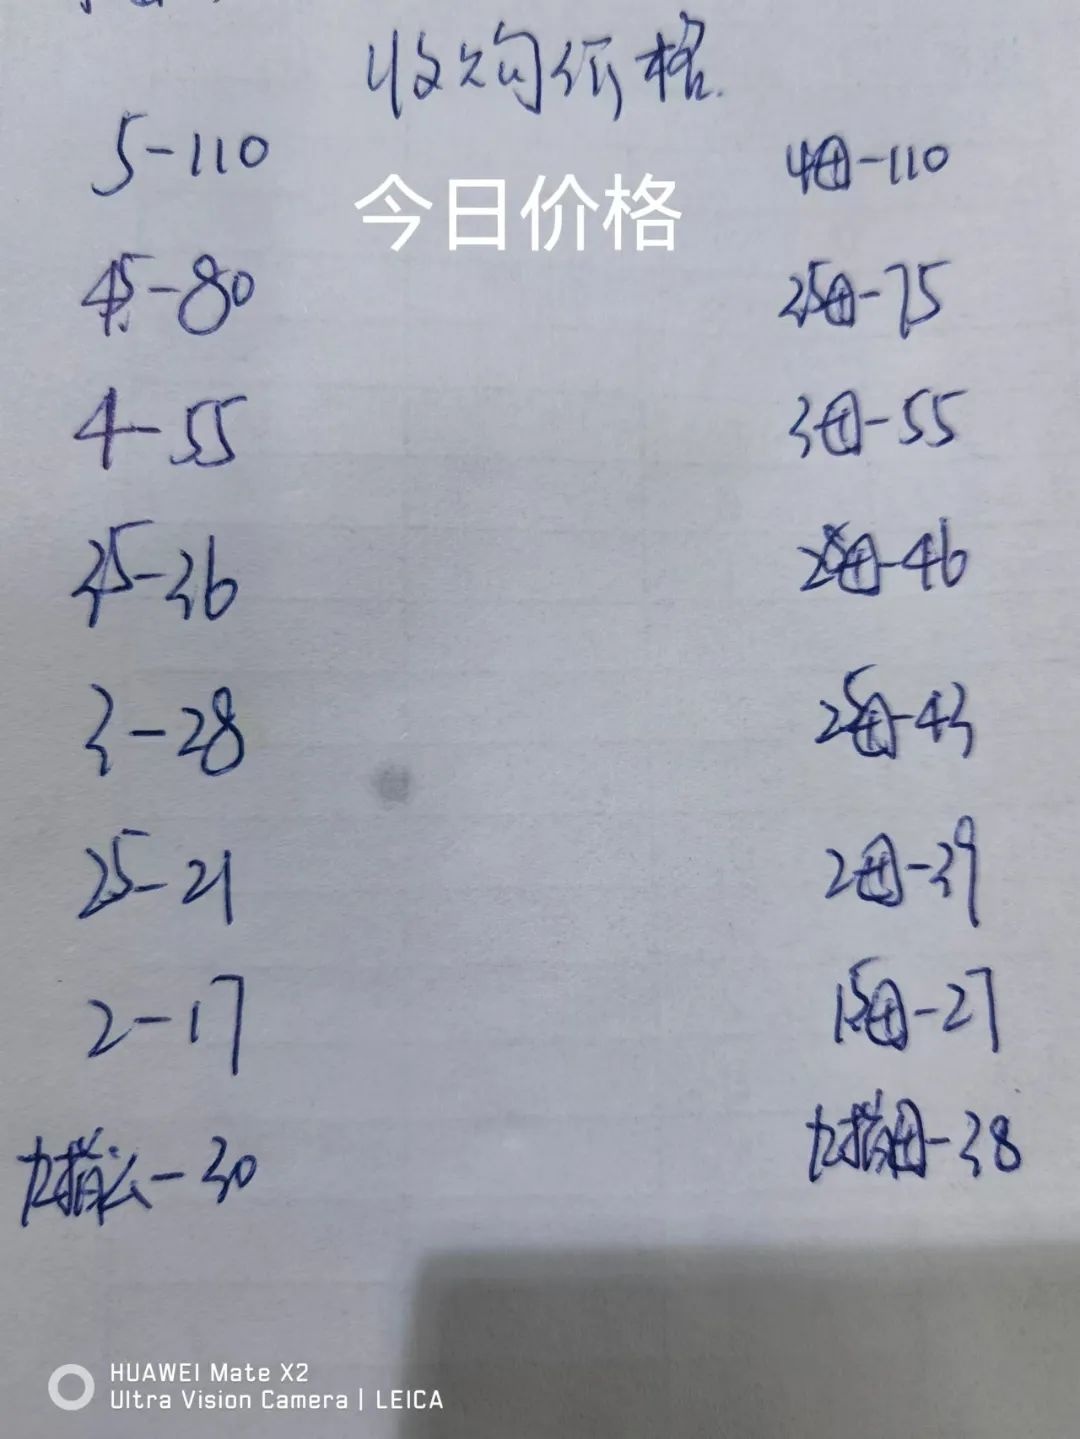 收购价格.
今日价格
5-110
4母-110
4.5-80
3.5母-75
4-55
3母-55
3.5-36
28母-46
3-28
25母-43
25-21
2母-39
2-17
1.5母-27
九指公-30
九指母-38
HUAWEI Mate X2
Ultra Vision Camera | LEICA